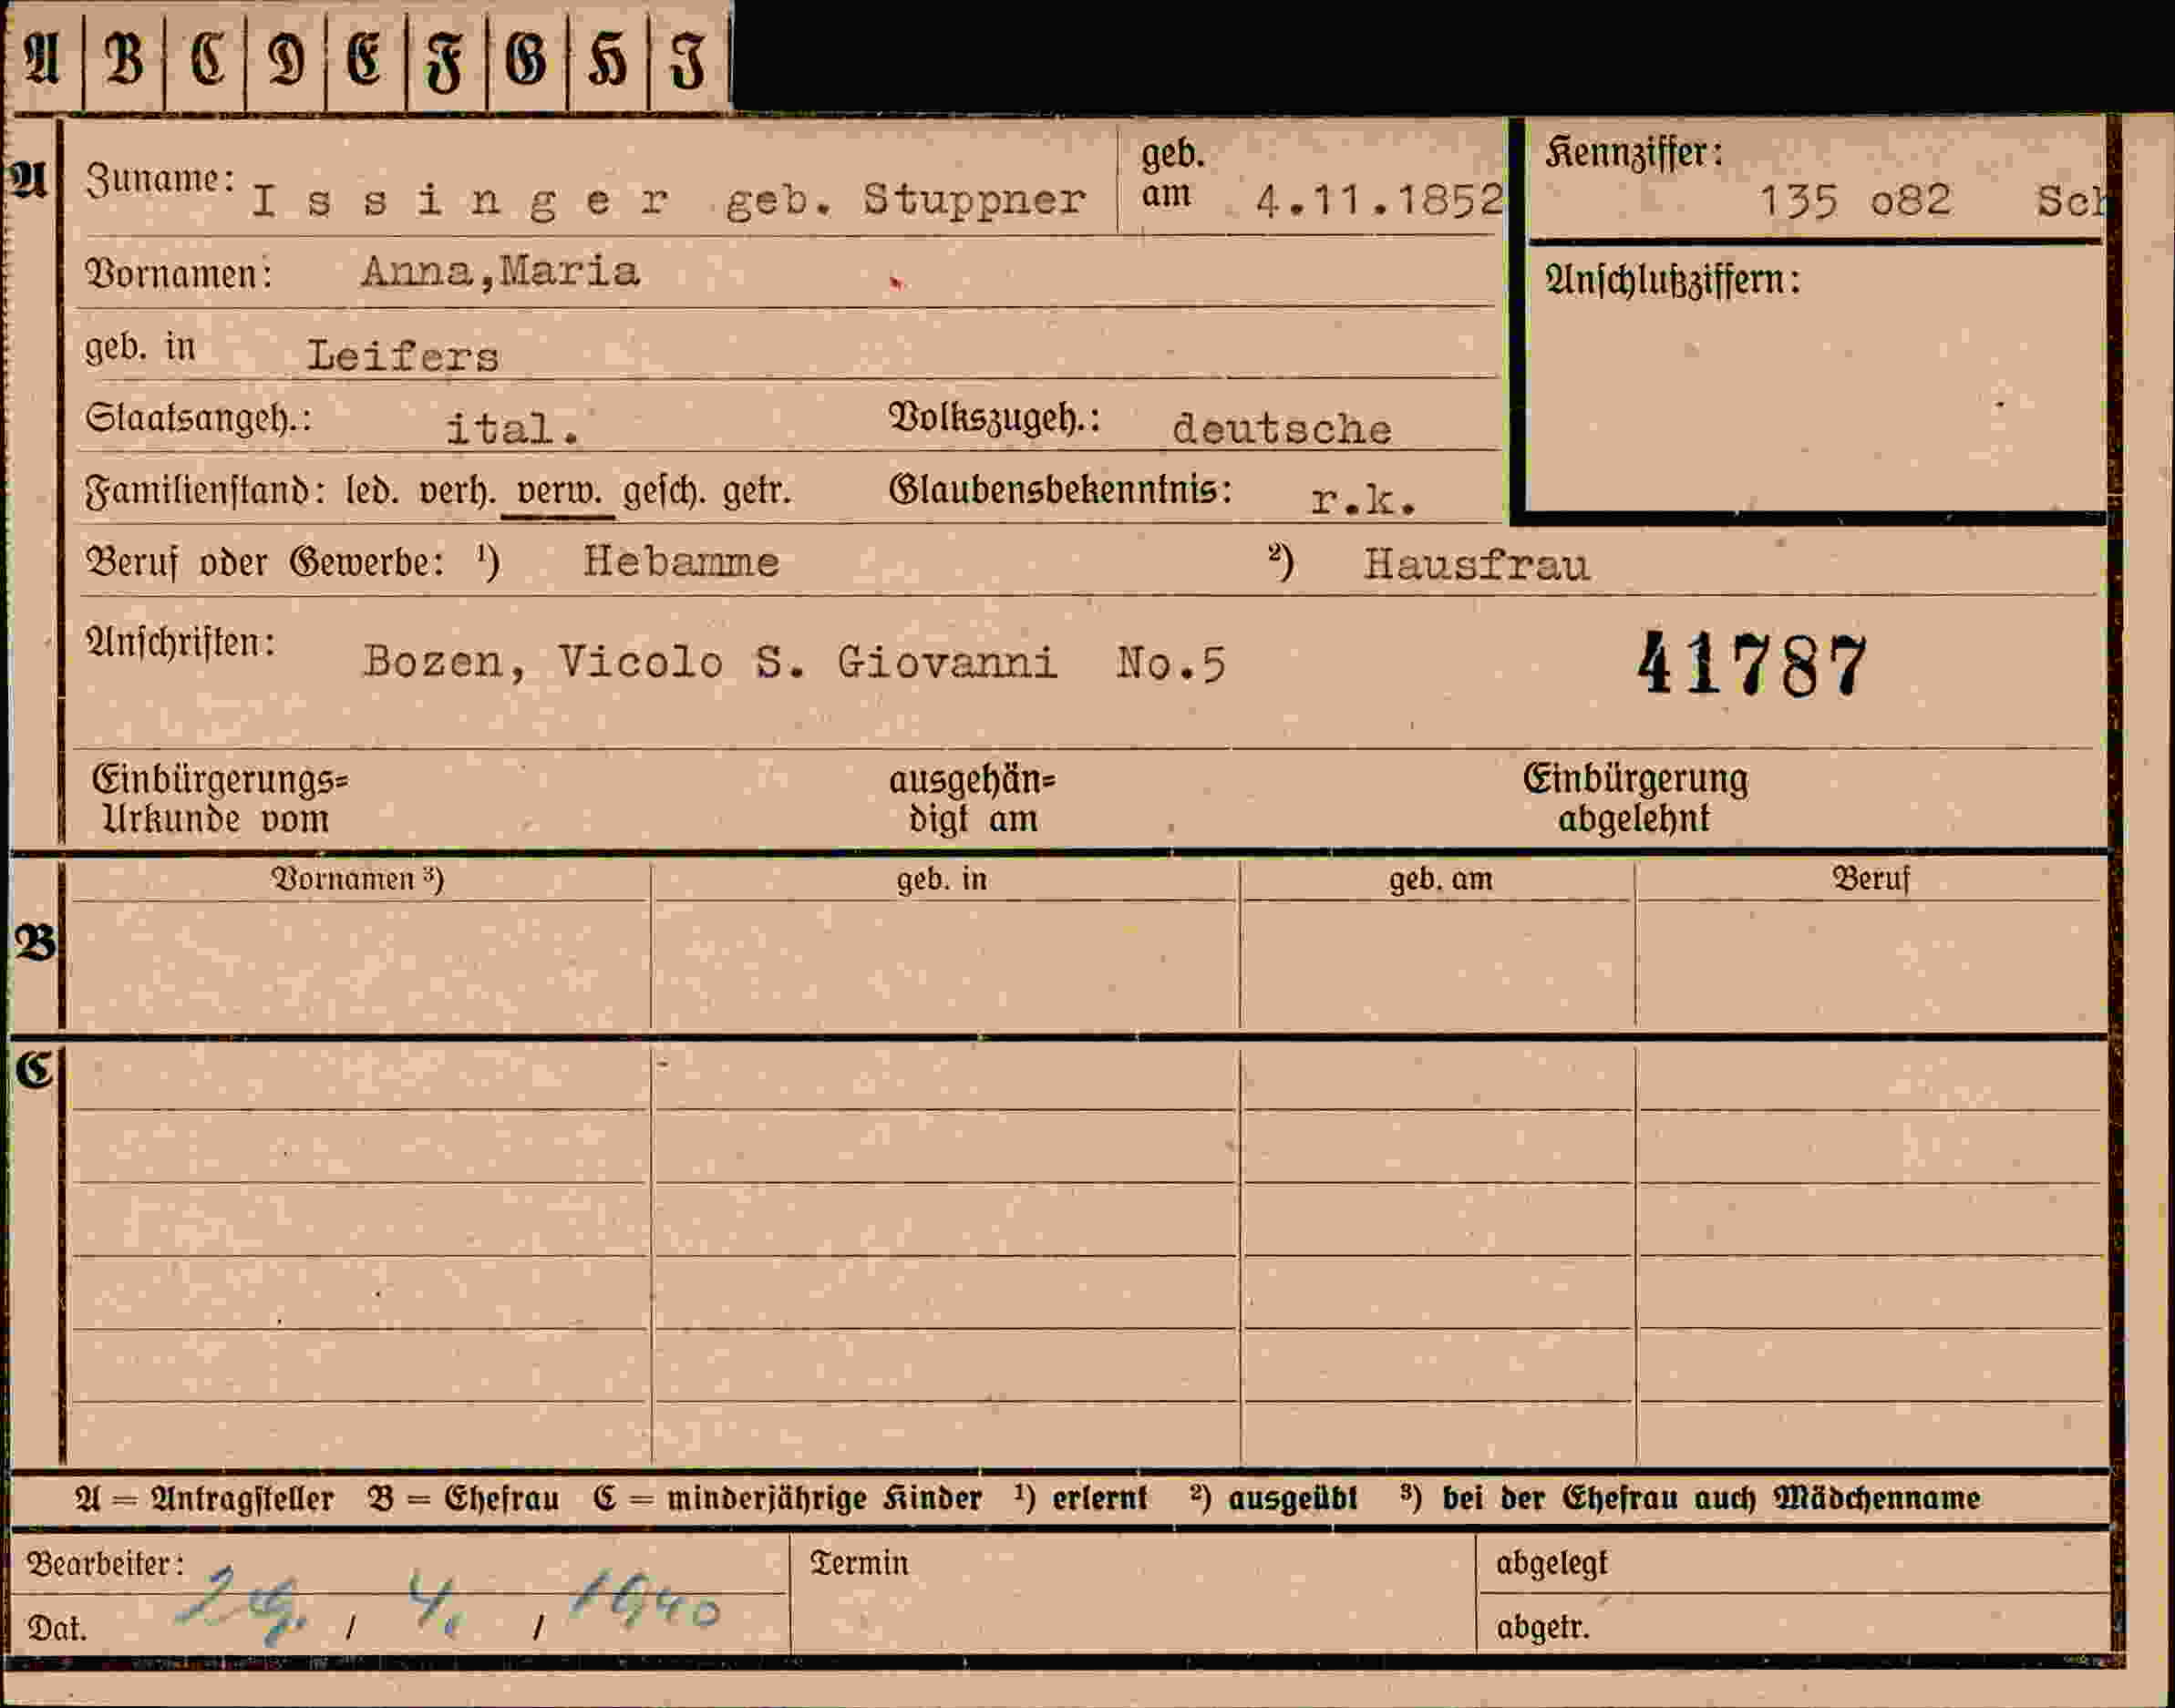 A B C D E F G H I
A Zuname: Issinger geb. Stuppner geb. am 4.11.1852 Kennziffer: 135 o82 Sch
Vornamen: Anna,Maria Anschlußziffern:
geb. in Leifers
Staatsangeh.: ital. Volkszugeh.: deutsche
Familienstand: led. verh. verw. gesch. getr. Glaubensbekenntnis: r.k.
Beruf oder Gewerbe: ¹) Hebamme ²) Hausfrau
Anschriften: Bozen, Vicolo S. Giovanni No.5 41787
Einbürgerungs= ausgehän= Einbürgerung
Urkunde vom digt am abgelehnt
Vornamen ³) geb. in geb. am Beruf
B
C
A = Antragsteller B = Ehefrau C = minderjährige Kinder ¹) erlernt ²) ausgeübt ³) bei der Ehefrau auch Mädchenname
Bearbeiter: Termin abgelegt
Dat. 29. / 4. / 1940 abgetr.